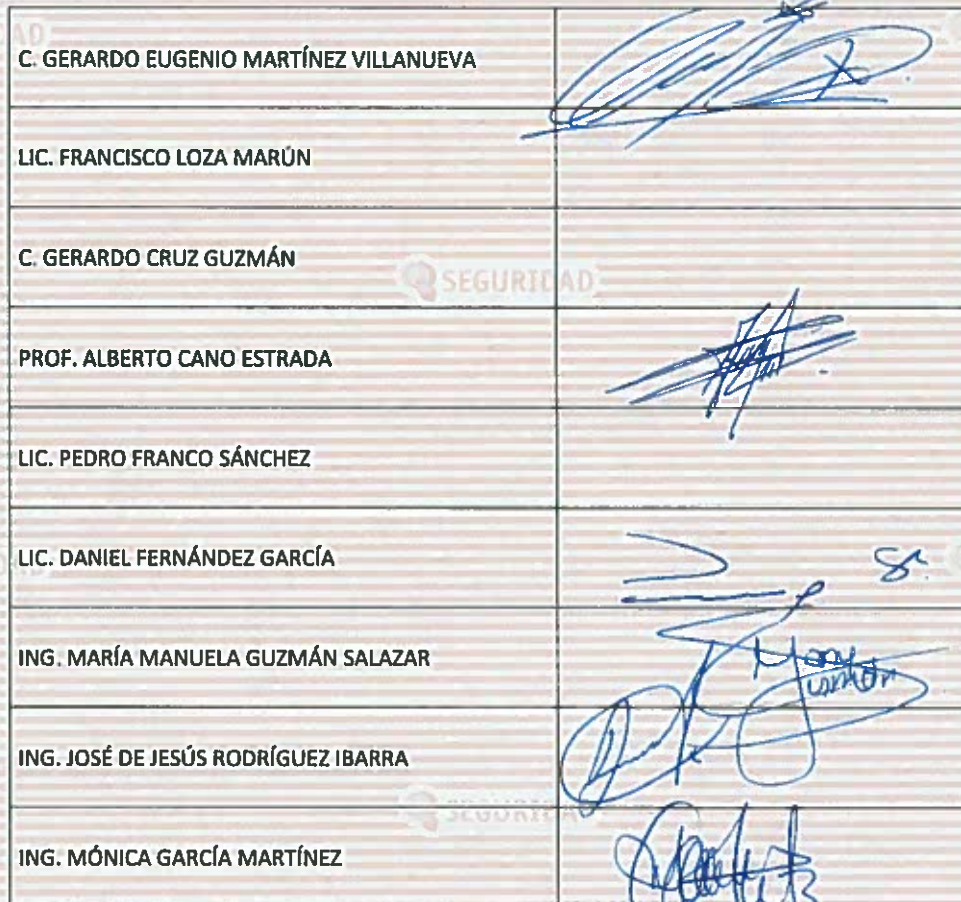 C. GERARDO EUGENIO MARTÍNEZ VILLANUEVA
LIC. FRANCISCO LOZA MARÚN
C. GERARDO CRUZ GUZMÁN
SEGURIDAD
PROF. ALBERTO CANO ESTRADA
LIC. PEDRO FRANCO SÁNCHEZ
LIC. DANIEL FERNÁNDEZ GARCÍA
ING. MARÍA MANUELA GUZMÁN SALAZAR
ING. JOSÉ DE JESÚS RODRÍGUEZ IBARRA
SEGURIDAD
ING. MÓNICA GARCÍA MARTÍNEZ